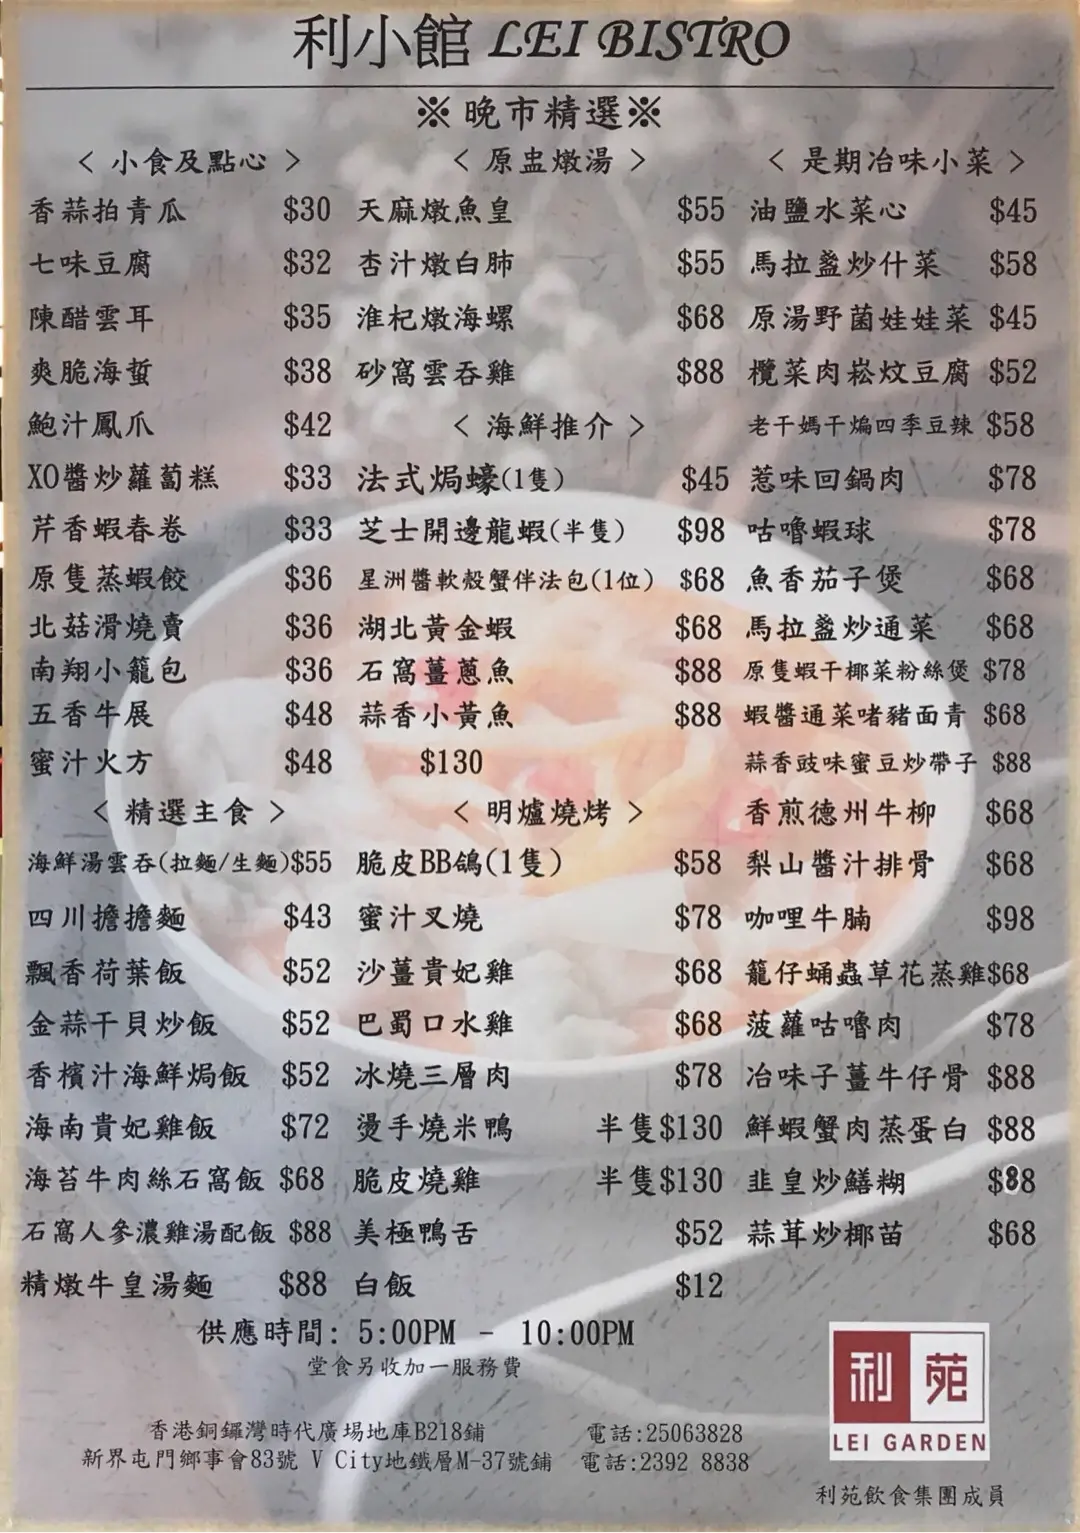 利小館 LEI BISTRO
※ 晚市精選※
< 小食及點心 >
香蒜拍青瓜 $30
七味豆腐 $32
陳醋雲耳 $35
爽脆海蜇 $38
鮑汁鳳爪 $42
XO醬炒蘿蔔糕 $33
芹香蝦春卷 $33
原隻蒸蝦餃 $36
北菇滑燒賣 $36
南翔小籠包 $36
五香牛展 $48
蜜汁火方 $48
< 精選主食 >
海鮮湯雲吞(拉麵/生麵)$55
四川擔擔麵 $43
飄香荷葉飯 $52
金蒜干貝炒飯 $52
香檳汁海鮮焗飯 $52
海南貴妃雞飯 $72
海苔牛肉絲石窩飯 $68
石窩人參濃雞湯配飯 $88
精燉牛皇湯麵 $88
< 原盅燉湯 >
天麻燉魚皇 $55
杏汁燉白肺 $55
淮杞燉海螺 $68
砂窩雲吞雞 $88
< 海鮮推介 >
法式焗蠔(1隻) $45
芝士開邊龍蝦(半隻) $98
星洲醬軟殼蟹伴法包(1位) $68
湖北黃金蝦 $68
石窩薑蔥魚 $88
蒜香小黃魚 $88
$130
< 明爐燒烤 >
脆皮BB鴿(1隻) $58
蜜汁叉燒 $78
沙薑貴妃雞 $68
巴蜀口水雞 $68
冰燒三層肉 $78
燙手燒米鴨 半隻$130
脆皮燒雞 半隻$130
美極鴨舌 $52
白飯 $12
< 是期冶味小菜 >
油鹽水菜心 $45
馬拉盞炒什菜 $58
原湯野菌娃娃菜 $45
欖菜肉崧炆豆腐 $52
老干媽干煸四季豆辣 $58
惹味回鍋肉 $78
咕嚕蝦球 $78
魚香茄子煲 $68
馬拉盞炒通菜 $68
原隻蝦干椰菜粉絲煲 $78
蝦醬通菜啫豬面青 $68
蒜香豉味蜜豆炒帶子 $88
香煎德州牛柳 $68
梨山醬汁排骨 $68
咖哩牛腩 $98
籠仔蛹蟲草花蒸雞$68
菠蘿咕嚕肉 $78
冶味子薑牛仔骨 $88
鮮蝦蟹肉蒸蛋白 $88
韭皇炒鱔糊 $88
蒜茸炒椰苗 $68
供應時間: 5:00PM - 10:00PM
堂食另收加一服務費
香港銅鑼灣時代廣場地庫B218鋪 電話:25063828
新界屯門鄉事會83號 V City地鐵層M-37號鋪 電話:2392 8838
利苑
LEI GARDEN
利苑飲食集團成員